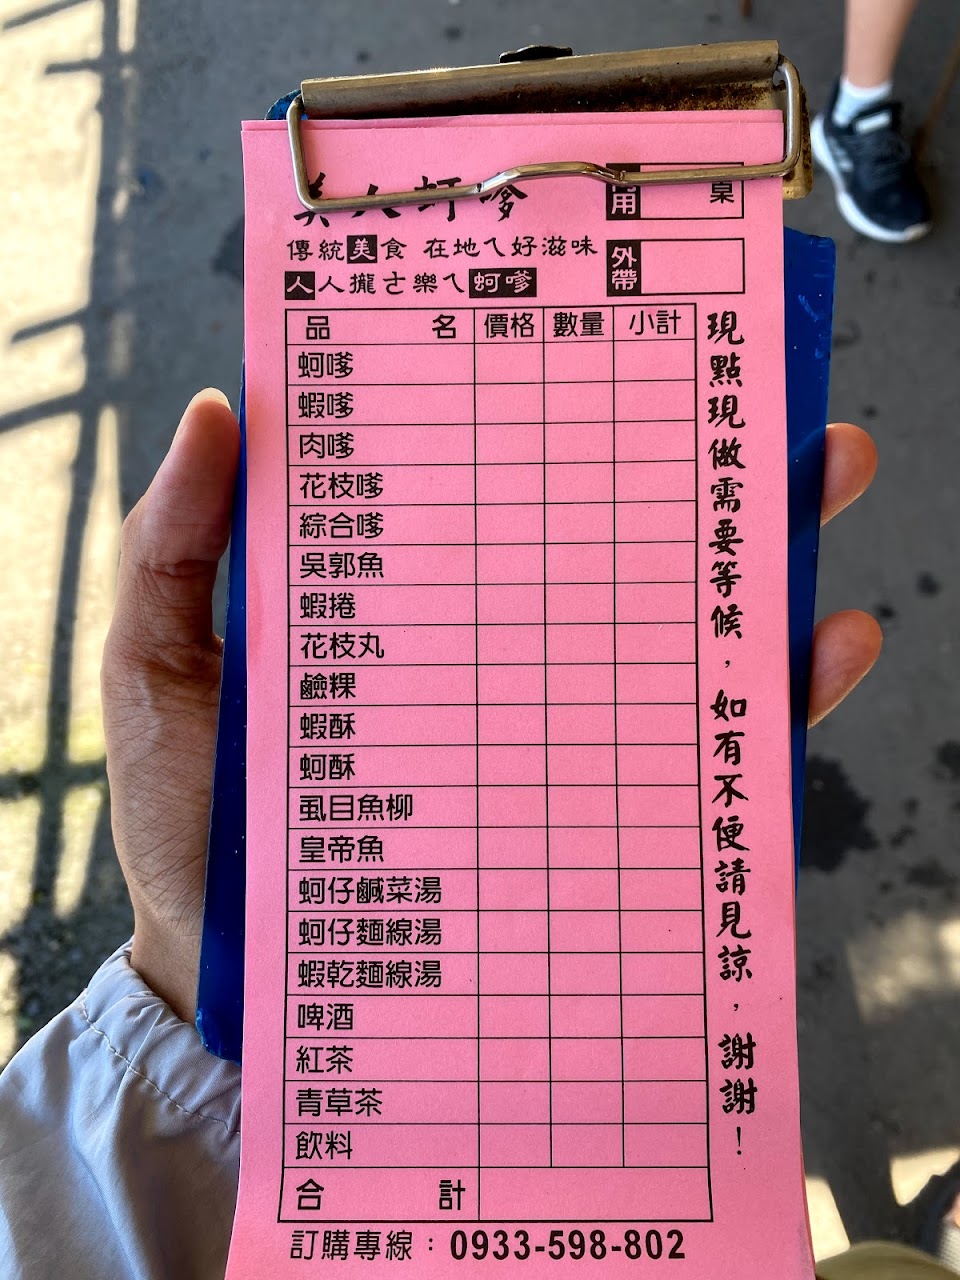 美人蚵嗲
用 桌
傳統美食 在地ㄟ好滋味
人人攏ㄜ樂ㄟ蚵嗲
外帶
品名 價格 數量 小計
蚵嗲
蝦嗲
肉嗲
花枝嗲
綜合嗲
吳郭魚
蝦捲
花枝丸
鹼粿
蝦酥
蚵酥
虱目魚柳
皇帝魚
蚵仔鹹菜湯
蚵仔麵線湯
蝦乾麵線湯
啤酒
紅茶
青草茶
飲料
合計
現點現做需要等候，如有不便請見諒，謝謝！
訂購專線：0933-598-802